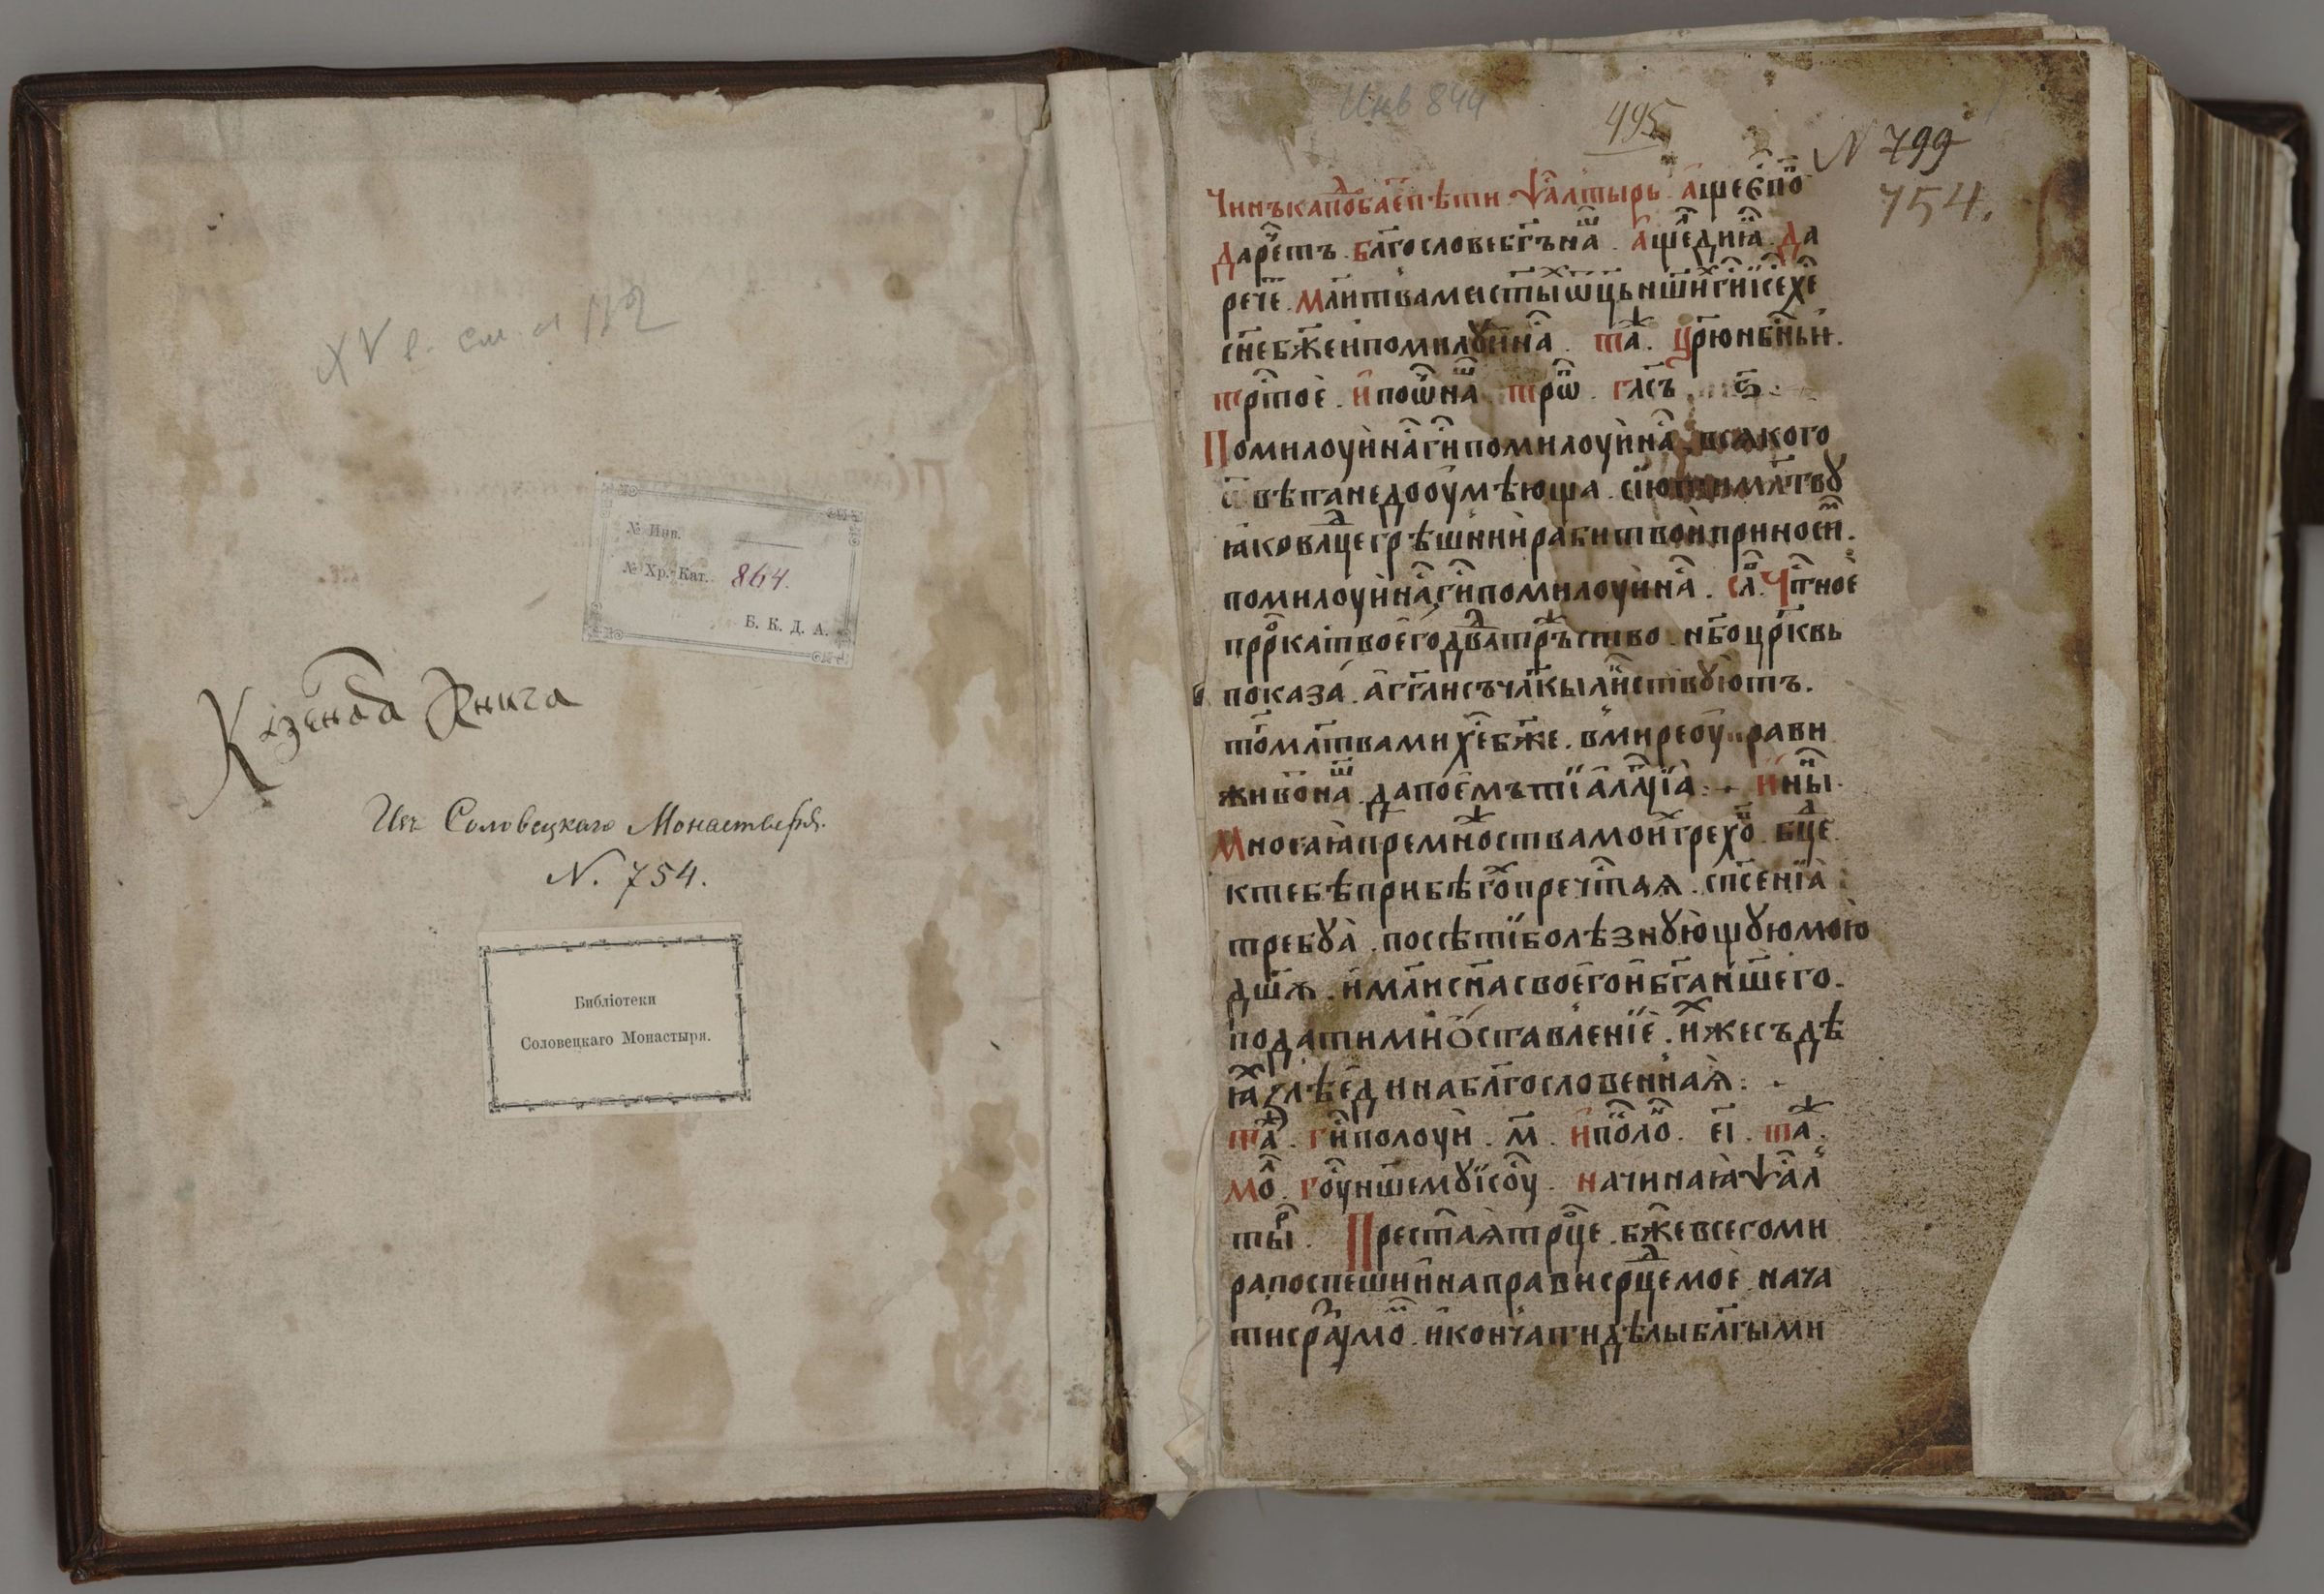 XV в. см. л 112
№ Инв.
№ Хр. Кат. 864.
Б. К. Д. А.
Казенная книга
Изъ Соловецкаго Монастыря.
N. 754.
Библіотеки
Соловецкаго Монастыря.
Инв 844
495
N 799
754.
Чинъ како подобает пѣти ѱалтырь аще єпо
дарет. блгословебгъна. ащедніа. да
рече. млитвамистыѡцьншигиісехе
снебжеипомилꙋина. та. црюнбныи.
тртоє. ипоѡна трѡ. глсъ ѕ
Помилоуинагипомилоуина. всякого
ѿвѣтанедооумѣюща. сию млтвꙋ
ꙗковлцегрѣшниирабитвоиприноси.
помилоуинагипомилоуина. сла. Чтноє
прркатвоєгодватръство. нбоцрквь
показа. аггглисъчлкыликствꙋютъ.
томлтвамихебже. вмиреоуправи
живона. дапоємътиаллуіа. ины.
Многаꙗпремножствамоигрехо. бце.
ктебѣприбѣгопречтаꙗ. спсеніа
требꙋа. посѣтиболѣзнꙋющꙋюмою
дшѧ. имлиснасвоєгоибганшего.
податимиѡставленіє. ижесъдѣ
ꙗзлѣєдинаблгословеннаꙗ.
та. гиполоуи. м. иполо. еі. та.
мо. гоуншемꙋісоу. начинаꙗѱал
ты. Престаꙗтрце. бжевсегоми
рапоспешиинаправисрцемоє нача
тисразумо. икончатидѣлыблгыми